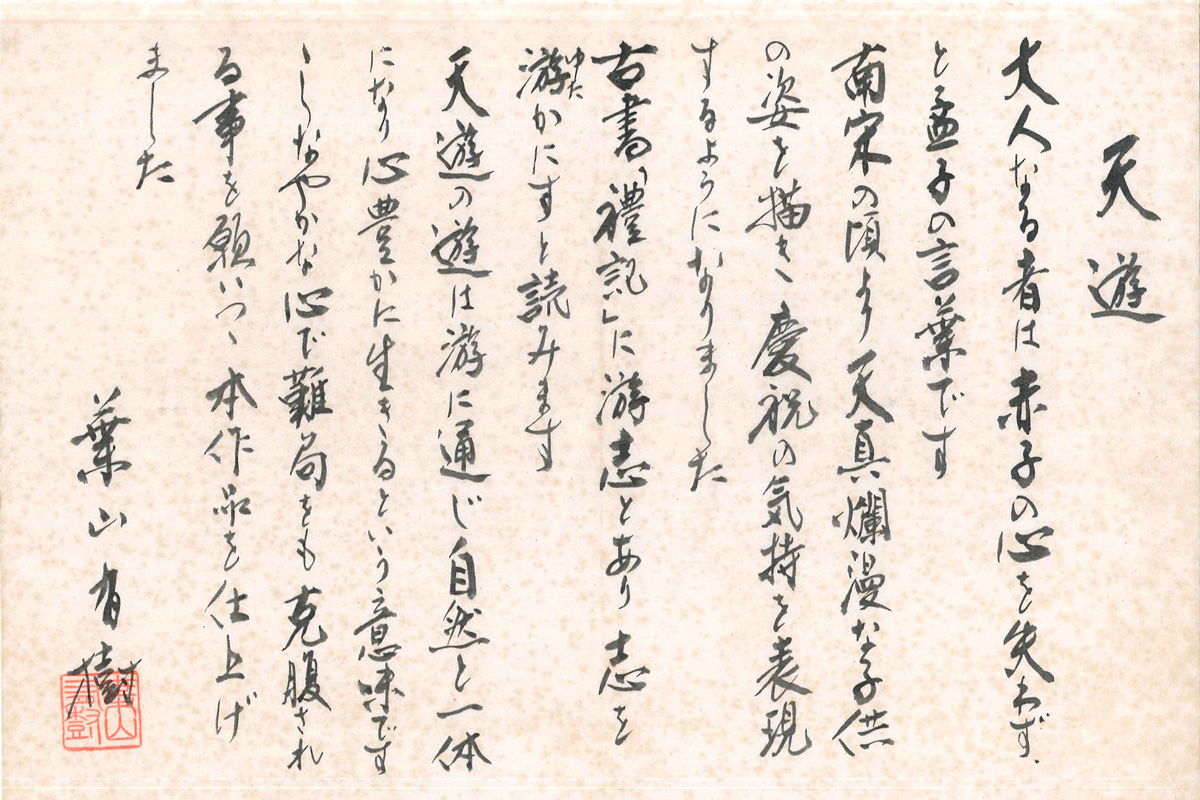 天遊
大人なる者は赤子の心を失わず
と孟子の言葉です
南宋の頃より天真爛漫な子供
の姿を描き、慶祝の気持を表現
するようになりました
古書「禮記」に游志とあり志を
游かにすと読みます
ゆた
天遊の遊は游に通じ自然と一体
になり心豊かに生きるという意味です
しなやかな心で難局をも克腹され
る事を願いつゝ本作品を仕上げ
ました
葉山有樹